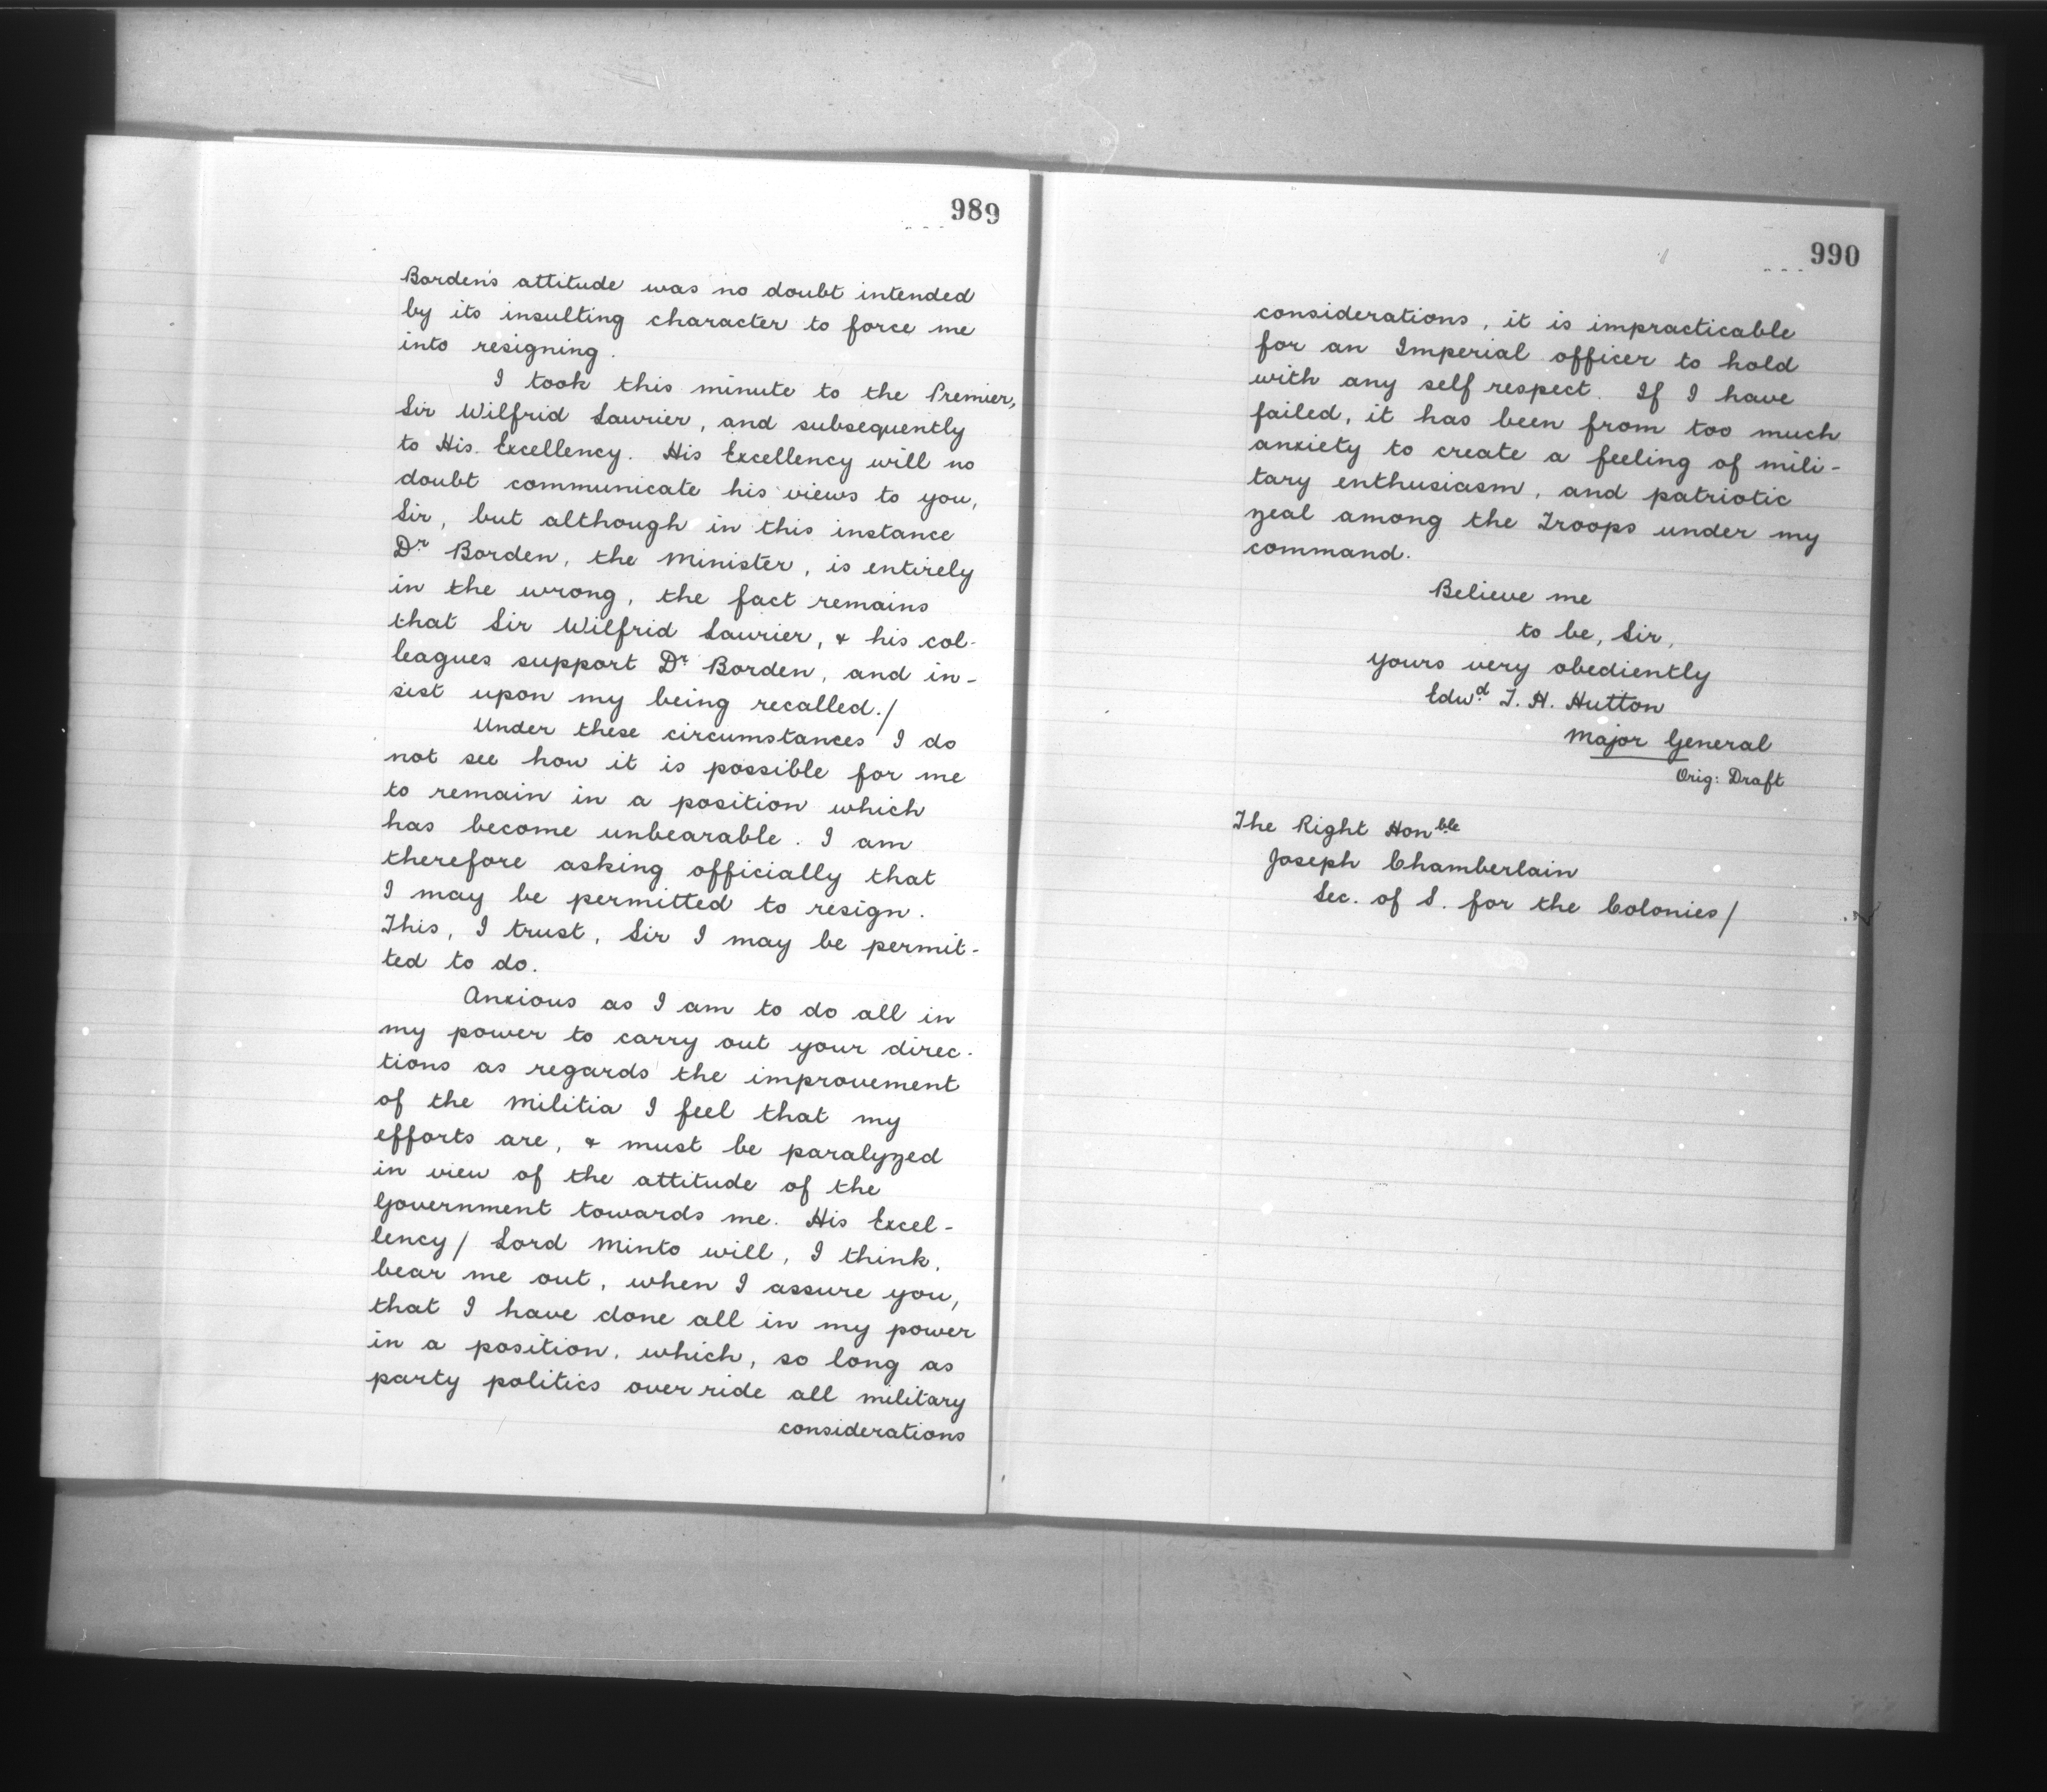 989
Borden's attitude was no doubt intended
by its insulting character to force me
into resigning.
I took this minute to the Premier,
Sir Wilfrid Laurier, and subsequently
to His Excellency. His Excellency will no
doubt communicate his views to you,
Sir, but although in this instance
Dr Borden, the Minister, is entirely
in the wrong, the fact remains
that Sir Wilfrid Laurier, & his col-
leagues support Dr Borden, and in-
sist upon my being recalled./
Under these circumstances I do
not see how it is possible for me
to remain in a position which
has become unbearable. I am
therefore asking officially that
I may be permitted to resign.
This, I trust, Sir I may be permit-
ted to do.
Anxious as I am to do all in
my power to carry out your direc-
tions as regards the improvement
of the Militia I feel that my
efforts are, & must be paralyzed
in view of the attitude of the
Government towards me. His Excel-
lency/ Lord Minto will, I think,
bear me out, when I assure you,
that I have done all in my power
in a position, which, so long as
party politics over ride all military
considerations
990
considerations, it is impracticable
for an Imperial officer to hold
with any self respect. If I have
failed, it has been from too much
anxiety to create a feeling of mili-
tary enthusiasm, and patriotic
zeal among the Troops under my
command.
Believe me
to be, Sir,
yours very obediently
Edwd T. H. Hutton
Major General
Orig: Draft
The Right Honble
Joseph Chamberlain
Sec. of S. for the Colonies/